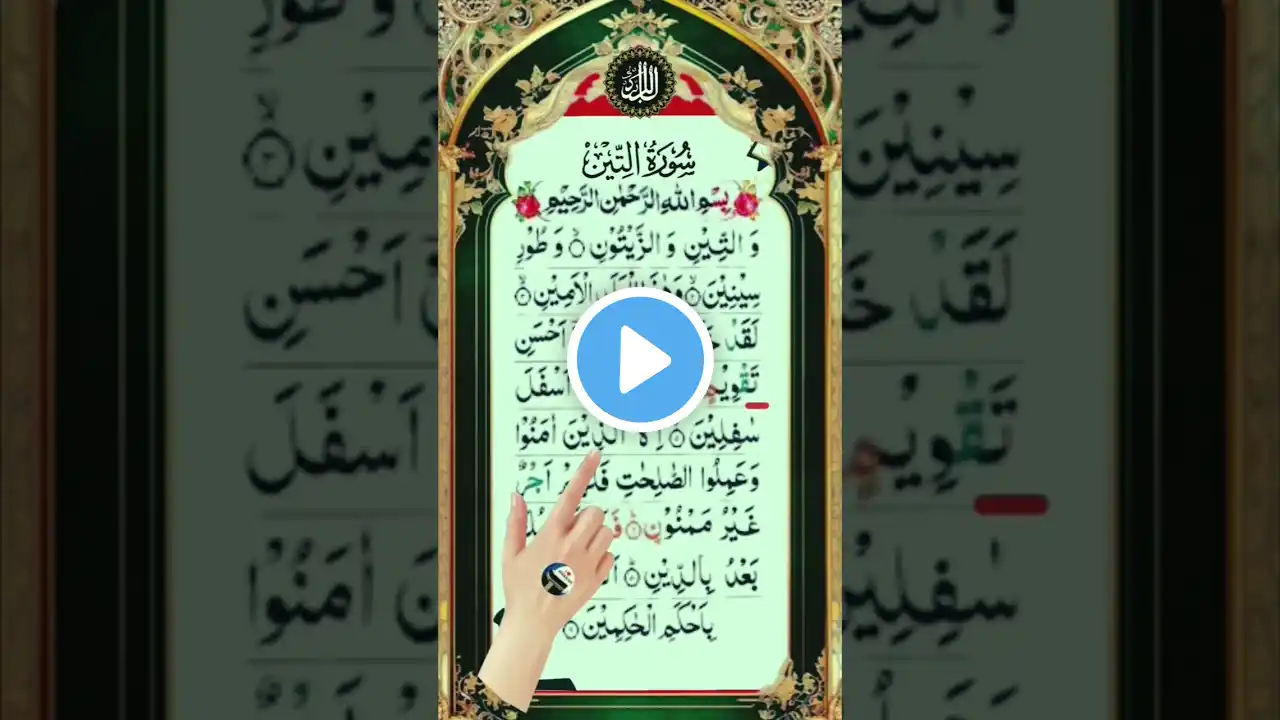 سُوْرَةُ التِّيْنِ
بِسْمِ اللهِ الرَّحْمٰنِ الرَّحِيْمِ
وَ التِّيْنِ وَ الزَّيْتُوْنِ ۙ وَ طُوْرِ
سِيْنِيْنَ ۙ الْاَمِيْنِ ۙ
لَقَدْ اَحْسَنِ
اَسْفَلَ
سٰفِلِيْنَ ۙ الَّذِيْنَ اٰمَنُوْا
وَعَمِلُوا الصّٰلِحٰتِ اَجْرٌ
غَيْرُ مَمْنُوْنٍ ؕ
بَعْدُ بِالدِّيْنِ ؕ
بِاَحْكَمِ الْحٰكِمِيْنَ